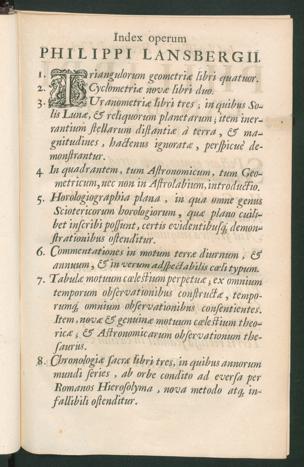 Index operum
PHILIPPI LANSBERGII.
1. Triangulorum geometriæ libri quatuor.
2. Cyclometriæ novæ libri duo.
3. Uranometriæ libri tres; in quibus So-
lis Lunæ, & reliquorum planetarum; item iner-
rantium stellarum distantiæ à terra, & ma-
gnitudines, hactenus ignoratæ, perspicuè de-
monstrantur.
4 In quadrantem, tum Astronomicum, tum Geo-
metricum, nec non in Astrolabium, introductio.
5. Horologiographia plana, in qua omne genus
Scioterιcorum horologiorum, quæ plano cuili-
bet inscribi possunt, certis evidentibusq́; demon-
strationibus ostenditur.
6. Commentationes in motum terræ diurnum, &
annuum, & in verum adspectabilis cæli typum.
7. Tabulæ motuum cælestium perpetuæ; ex omnium
temporum observationibus constructæ, tempo-
rumq́; omnium observationibus consentientes.
Item, novæ & genuinæ motuum cælestium theo-
ricæ; & Astronomicarum observationum the-
saurus.
8. Chronologiæ sacræ libri tres, in quibus annorum
mundi series, ab orbe condito ad eversa per
Romanos Hierosolyma, nova metodo atq́; in-
fallibili ostenditur.